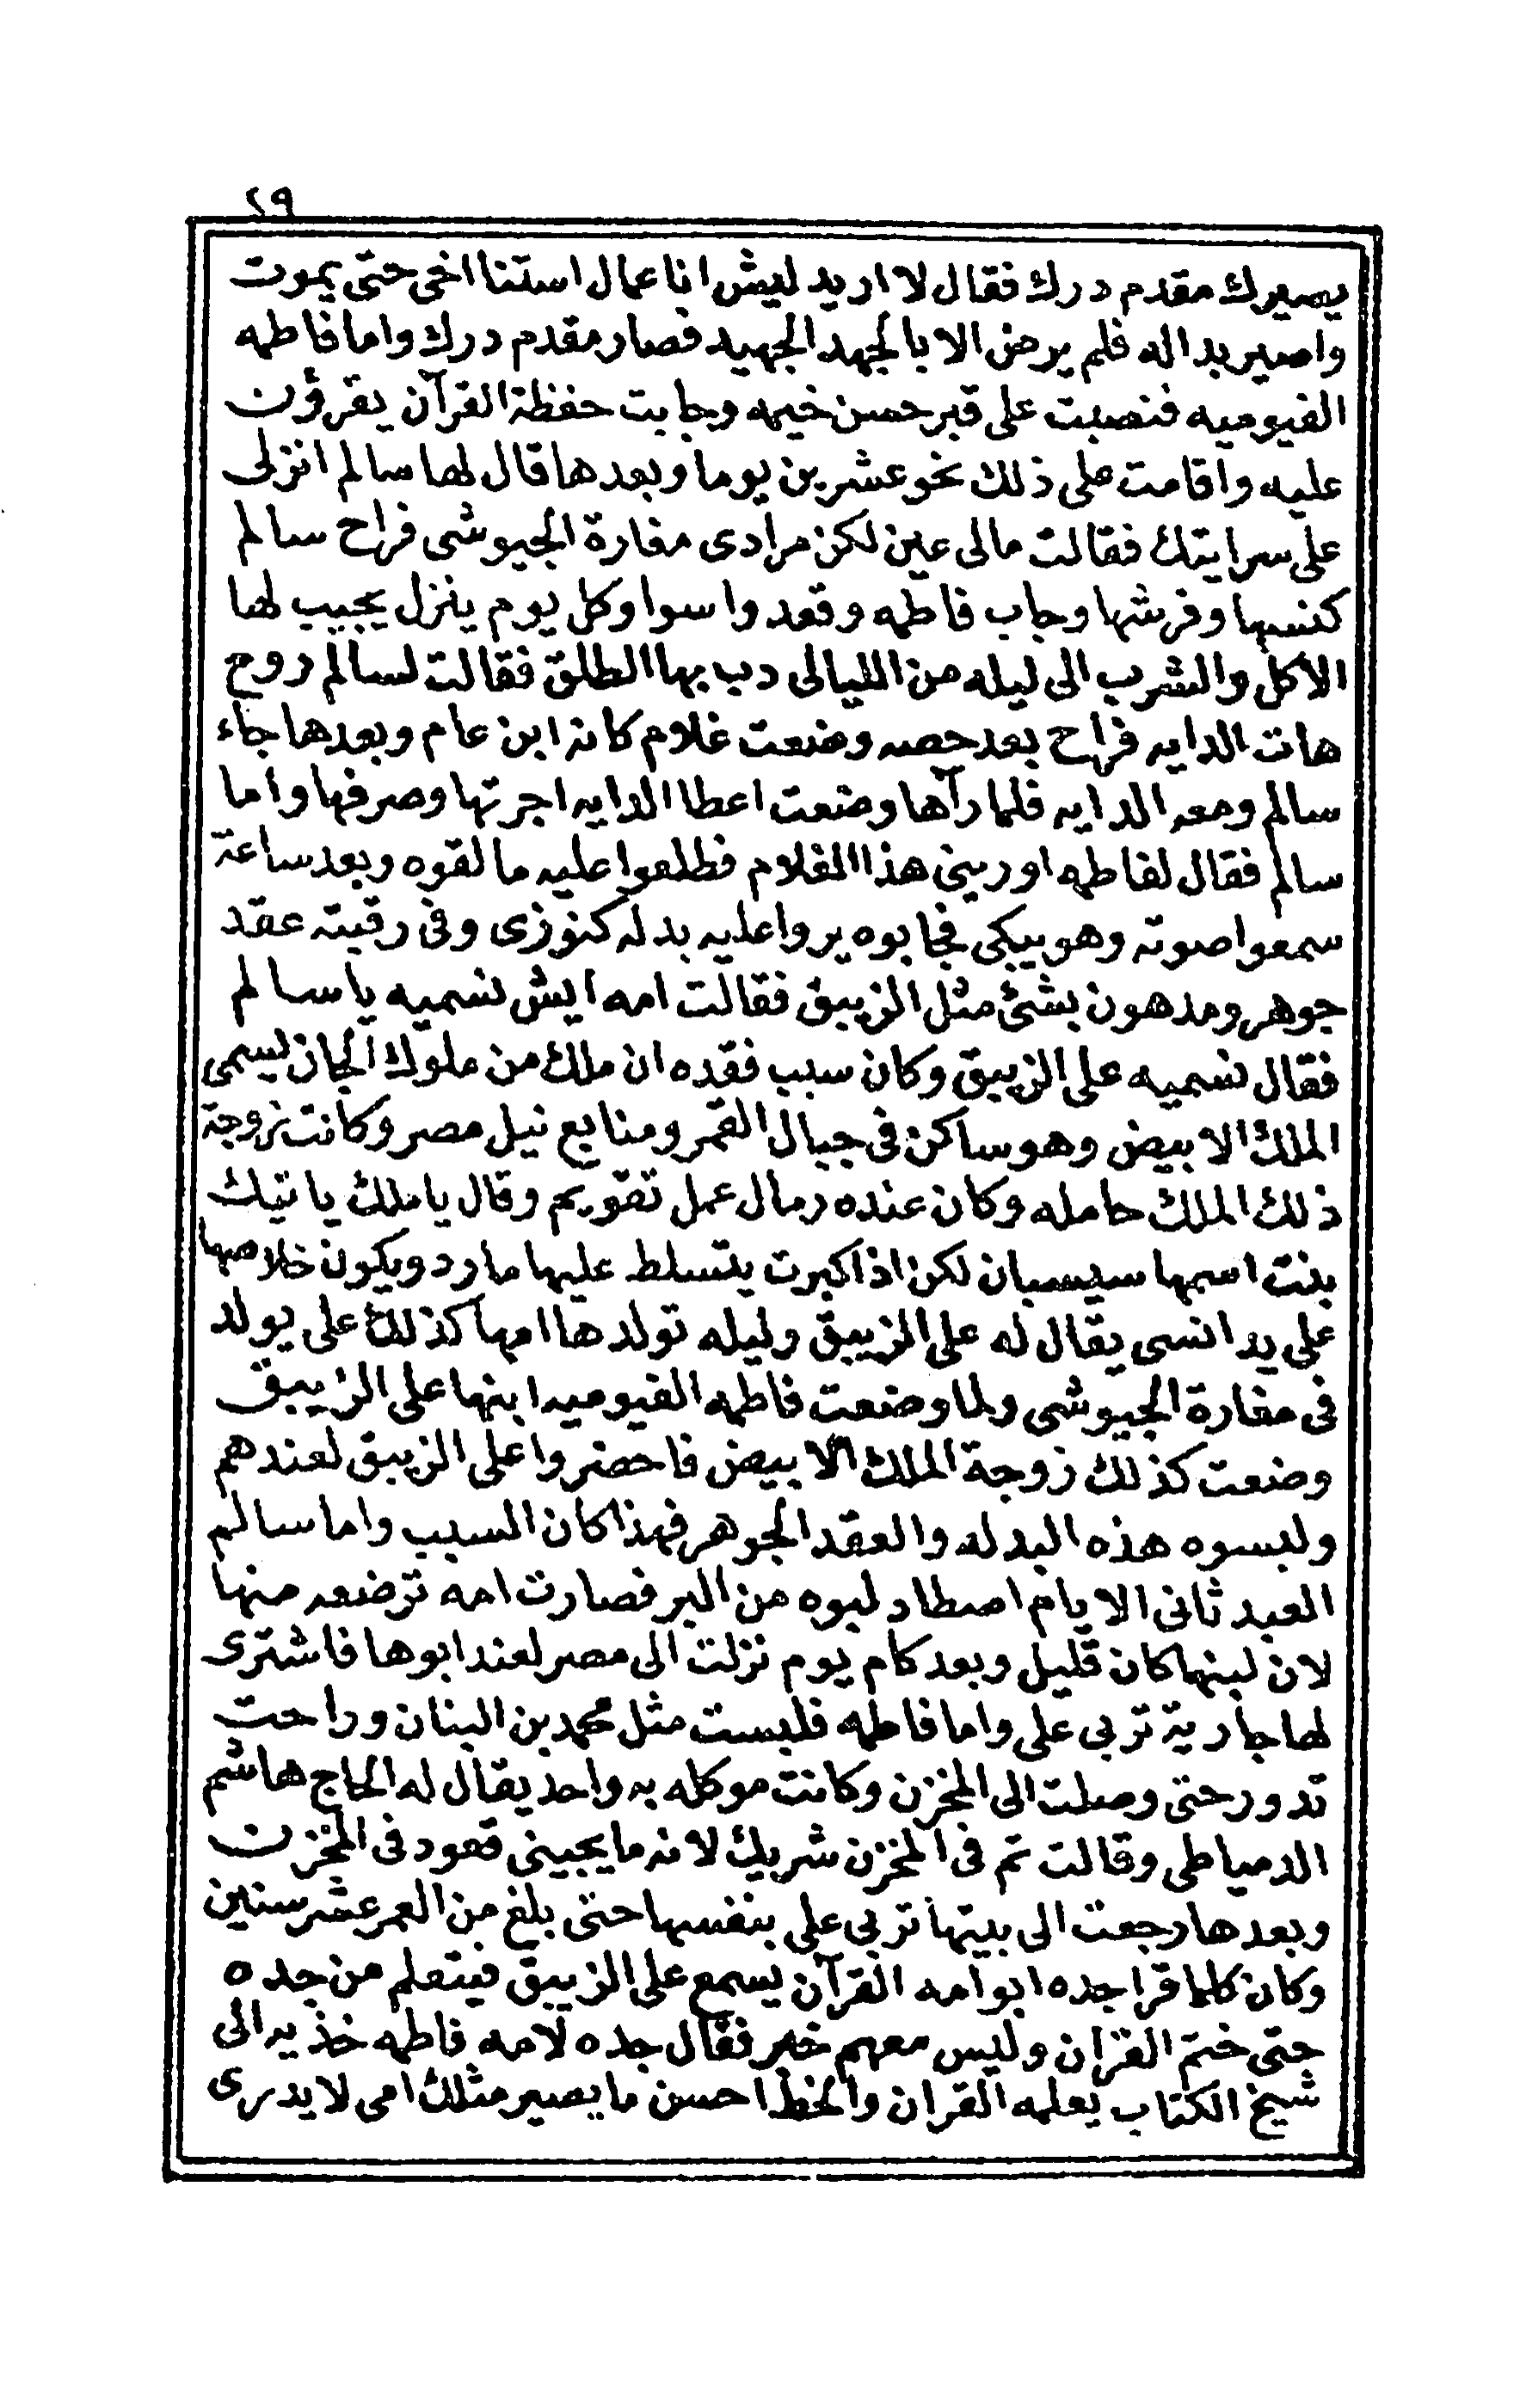 ٢٩
يصيرك مقدم درك فقال لا اريد ليش انا عمال استنا اخي حتى يموت
واصير بداله فلم يرض الا بالجهد الجهيد فصار مقدم درك واما فاطمه
الفيوميه فنصبت على قبر حسن خيمه وجابت حفظة القرآن يقرؤن
عليه واقامت على ذلك نحو عشرين يوما وبعدها قال لها سالم انزلى
على سرايتك فقالت مالى عين لكن مرادى مغارة الجيوشى فراح سالم
كنسها وفرشها وجاب فاطمه وقعدوا سوا وكل يوم ينزل يجيب لها
الاكل والشرب الى ليله من الليالى دب بها الطلق فقالت لسالم روح
هات الدايه فراح بعد حصه وضعت غلام كانه ابن عام وبعدها جاء
سالم ومعه الدايه فلما رآها وضعت اعطا الدايه اجرتها وصرفها واما
سالم فقال لفاطمه اورينى هذا الغلام فطلعوا عليه ما لقوه وبعد ساعة
سمعوا صوته وهو يبكى فجابوه يروا عليه بدله كنوزى وفى رقبته عقد
جوهر ومدهون بشئ مثل الزيبق فقالت امه ايش نسميه يا سالم
فقال نسميه على الزيبق وكان سبب فقده ان ملك من ملوك الجان يسمى
الملك الابيض وهو ساكن فى جبال القمر ومنابع نيل مصر وكانت زوجة
ذلك الملك حامله وكان عنده رمال عمل تقويم وقال يا ملك ياتيك
بنت اسمها سيسبان لكن اذا كبرت يتسلط عليها مارد ويكون خلاصها
على يد انسى يقال له على الزيبق وليله تولدها امها كذلك على يولد
فى مغارة الجيوشى ولما وضعت فاطمه الفيوميه ابنها على الزيبق
وضعت كذلك زوجة الملك الابيض فاحضروا على الزيبق لعندهم
ولبسوه هذه البدله والعقد الجوهر فهذا كان السبب واما سالم
العبد ثانى الايام اصطاد لبوه من البر فصارت امه ترضعه منها
لان لبنها كان قليل وبعد كام يوم نزلت الى مصر لعند ابوها فاشترى
لها جارية تربى على واما فاطمه فلبست مثل محمد بن البنان وراحت
تدور حتى وصلت الى المخزن وكانت موكله به واحد يقال له الحاج هاشم
الدمياطى وقالت تم فى المخزن شريك لانه ما يجيبنى قعود فى المخزن
وبعدها رجعت الى بيتها تربى على بنفسها حتى بلغ من العمر عشر سنين
وكان كلما قرا جده ابو امه القرآن يسمع على الزيبق فيتعلم من جده
حتى ختم القرآن وليس معهم خبر فقال جده لامه فاطمه خذيه الى
شيخ الكتاب يعلمه القران والخط احسن ما يصير مثلك امى لا يدرى